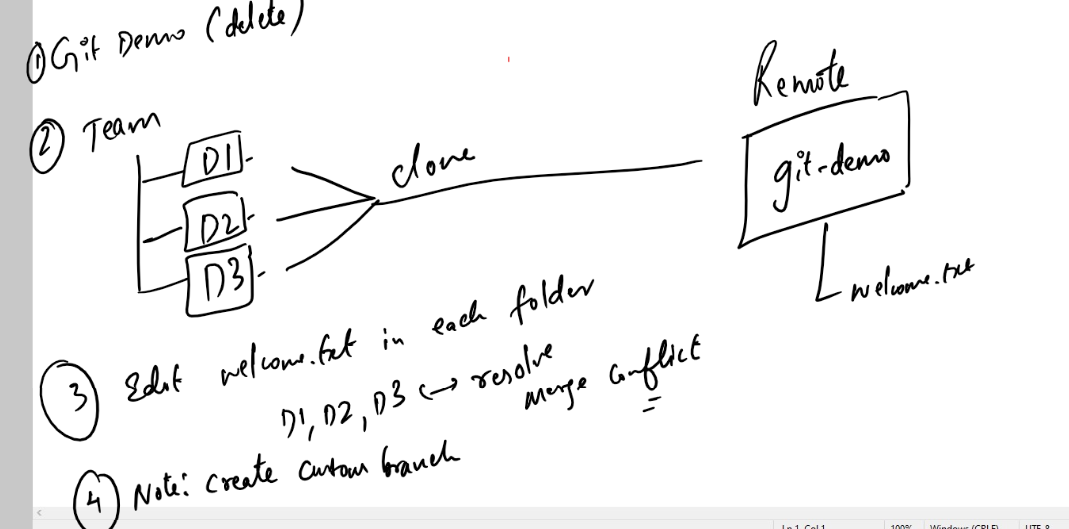 ① Git Demo (delete)
Remote
② Team
D1
D2
D3
clone
git-demo
welcome.txt
③ Edit welcome.txt in each folder
D1, D2, D3 ↔ resolve merge conflict
④ Note: Create Custom branch
Ln 1, Col 1 100% Windows (CRLF) UTF-8